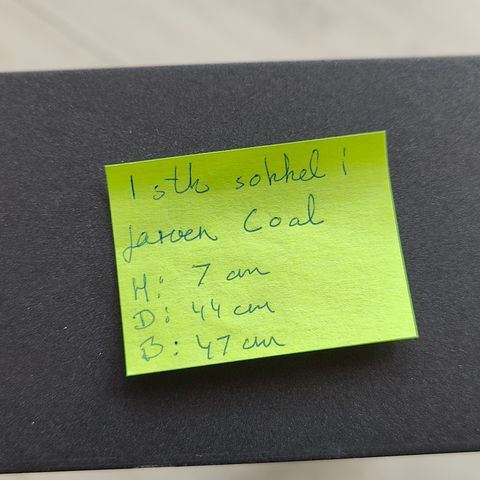 1 stk sokkel i
farven Coal
H: 7 cm
D: 44 cm
B: 47 cm